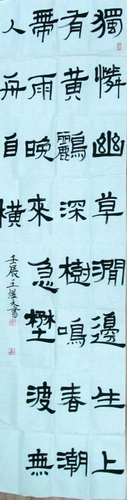 獨憐幽草澗邊生上
有黃鸝深樹鳴春潮
帶雨晚來急壄波無
人舟自橫
壬辰王書